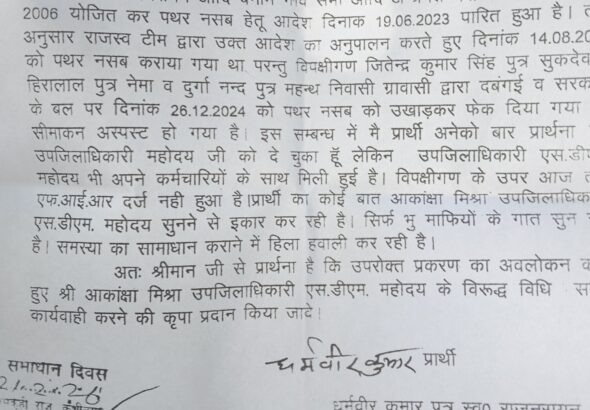 2006 योजित कर पथर नसब हेतू आदेश दिनाक 19.06.2023 पारित हुआ है।
अनुसार राजस्व टीम द्वारा उक्त आदेश का अनुपालन करते हुए दिनांक 14.08.20
को पथर नसब कराया गया था परन्तु विपक्षीगण जितेन्द्र कुमार सिंह पुत्र सुकदेव
हिरालाल पुत्र नेमा व दुर्गा नन्द पुत्र महन्थ निवासी ग्रावासी द्वारा दबंगई व सरक
के बल पर दिनांक 26.12.2024 को पथर नसब को उखाड़कर फेक दिया गया
सीमाकन अस्पस्ट हो गया है। इस सम्बन्ध में मै प्रार्थी अनेको बार प्रार्थना
उपजिलाधिकारी महोदय जी को दे चुका हूँ लेकिन उपजिलाधिकारी एस.डीए
महोदय भी अपने कर्मचारियों के साथ मिली हुई है। विपक्षीगण के उपर आज त
एफ.आई.आर दर्ज नही हुआ है।प्रार्थी का कोई बात आकांक्षा मिश्रा उपजिलाधिका
एस.डीएम. महोदय सुनने से इकार कर रही है। सिर्फ भु माफियों के गात सुन
है। समस्या का सामाधान कराने में हिला हवाली कर रही है।
अतः श्रीमान जी से प्रार्थना है कि उपरोक्त प्रकरण का अवलोकन क
हुए श्री आकांक्षा मिश्रा उपजिलाधिकारी एस.डीएम. महोदय के विरूद्ध विधि स
कार्यवाही करने की कृपा प्रदान किया जादे!
धर्मवीर कुमार प्रार्थी
समाधान दिवस
धर्मवीर कुमार पुत्र स्व0